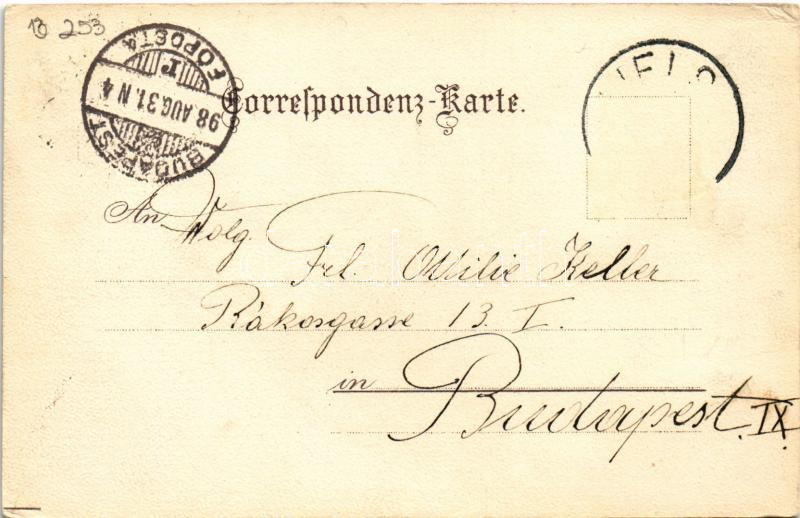 B 253
BUDAPEST
98 AUG.31. N 4
I
FŐPOSTA
Correspondenz-Karte.
An Wolg.
Frl. Ottilie Keller
Rákosgasse 13. I.
in Budapest. IX.